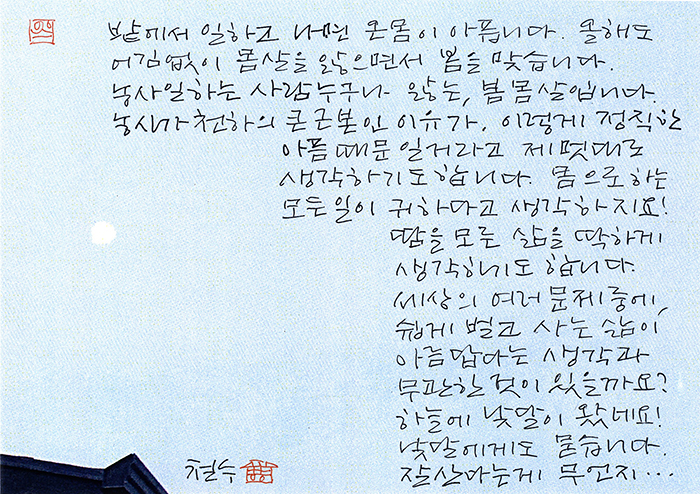 밭에서 일하고 나면 온몸이 아픕니다. 올해도
어김없이 몸살을 앓으면서 봄을 맞습니다.
농사일하는 사람 누구나 앓는, 봄 몸살입니다.
농사가 천하의 큰 근본인 이유가, 이렇게 정직한
아픔 때문일거라고 제멋대로
생각하기도 합니다. 몸으로 하는
모든 일이 귀하다고 생각하지요!
땀을 모르는 삶을 딱하게
생각하기도 합니다.
세상의 여러 문제 중에,
쉽게 벌고 사는 삶이
아름답다는 생각과
무관한 것이 있을까요?
하늘에 낮달이 왔네요!
낮달에게도 묻습니다.
잘산다는게 무언지···
철수